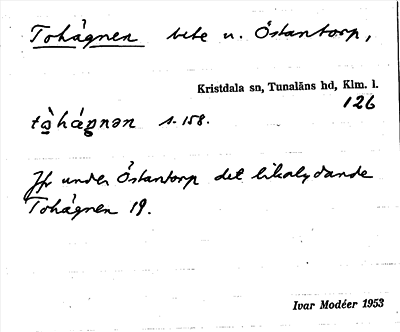 Tohägnen bete u. Östantorp,
Kristdala sn, Tunaläns hd, Klm. l.
126
tò̱hágnən s. 158.
Jfr under Östantorp det likalydande
Tohägnen 19.
Ivar Modéer 1953